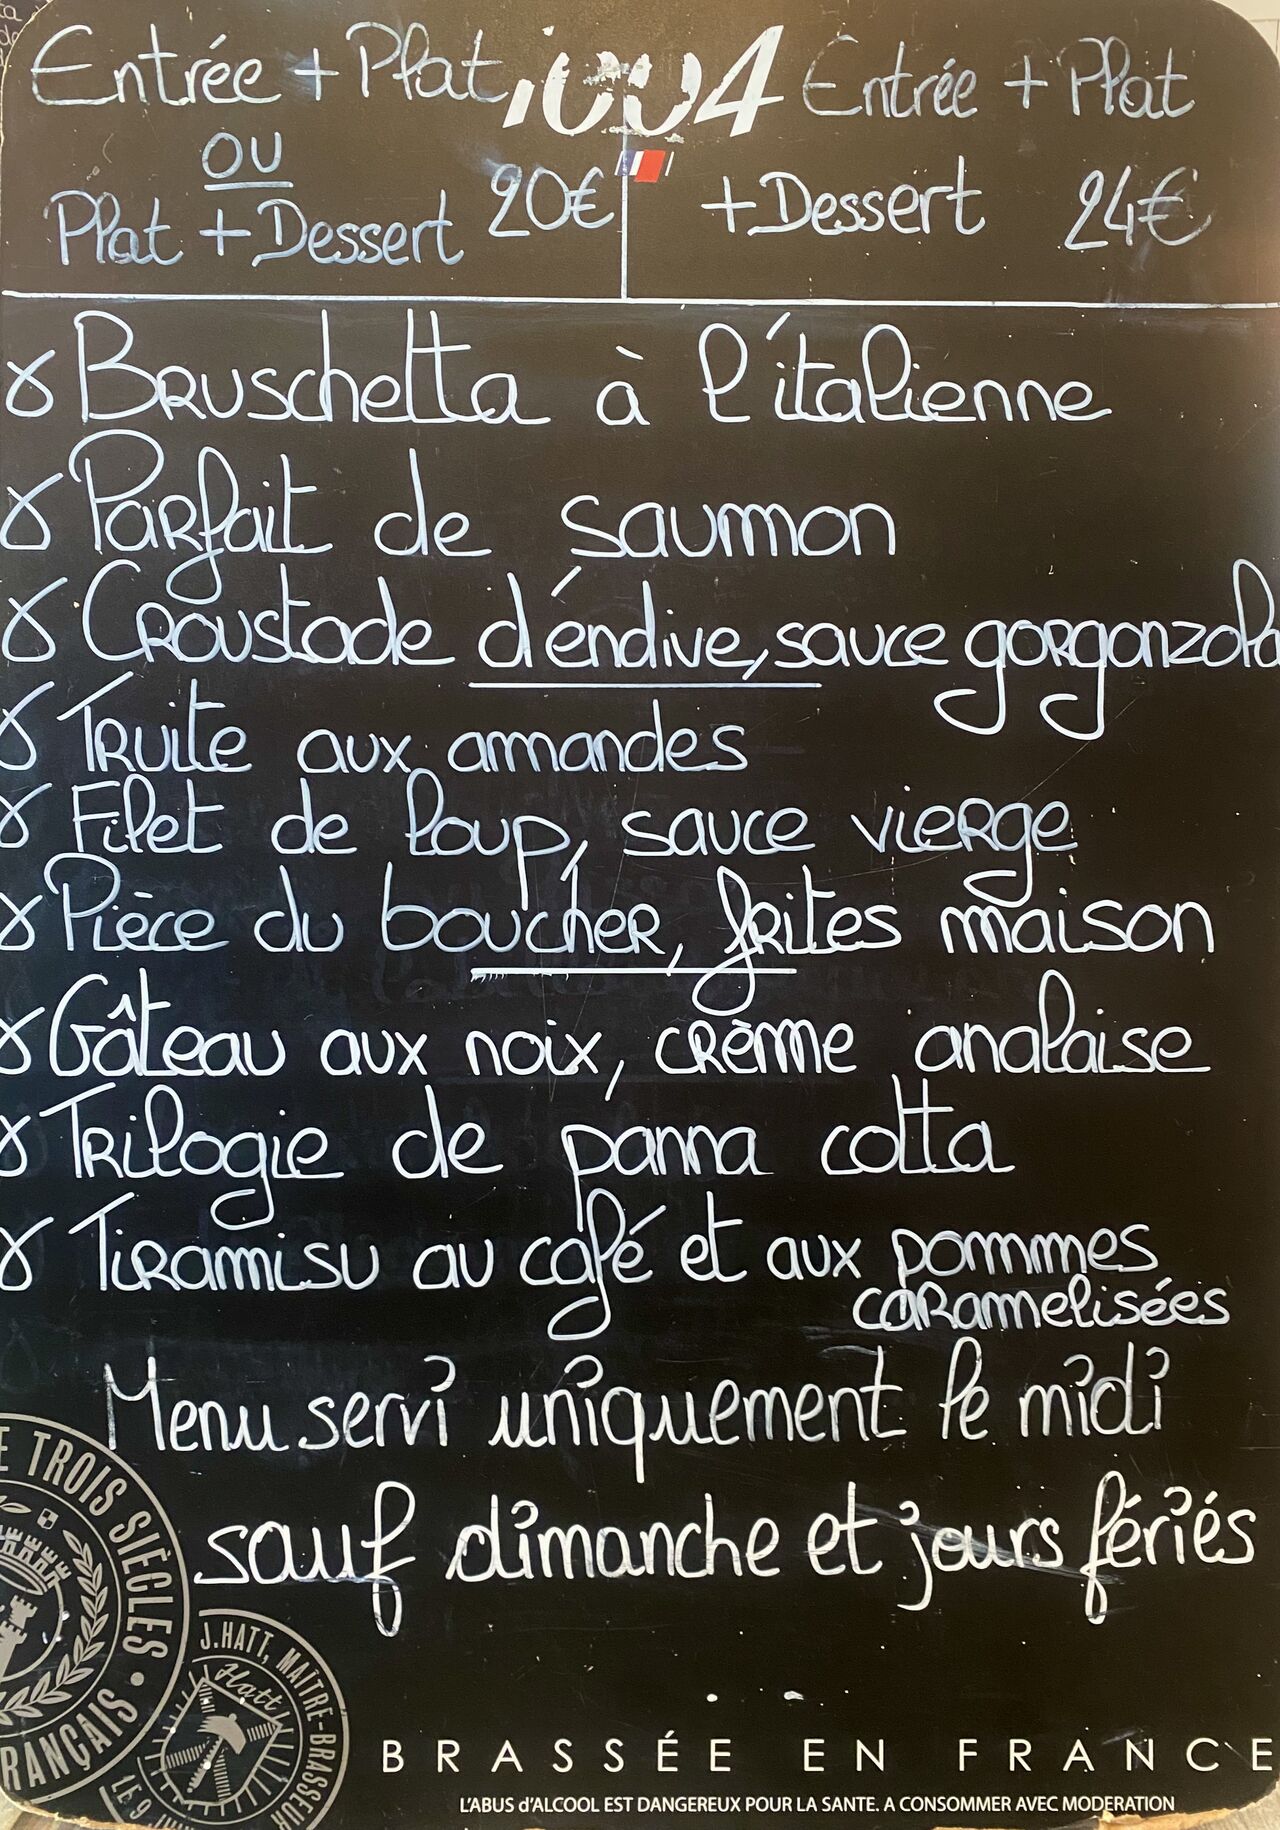 Entrée + Plat
ou
Plat + Dessert 20€
Entrée + Plat
+ Dessert 24€
Bruschetta à l'italienne
Parfait de saumon
Croustade d'éndive, sauce gorgonzola
Truite aux amandes
Filet de loup, sauce vierge
Pièce du boucher, frites maison
Gâteau aux noix, crème anglaise
Trilogie de panna cotta
Tiramisu au café et aux pommes
caramelisées
Menu servi uniquement le midi
sauf dimanche et jours fériés
E TROIS SIÈCLES •
RANÇAIS
J.HATT, MAÎTRE-BRASSEUR
Hatt
LE 9
BRASSÉE EN FRANCE
L'ABUS d'ALCOOL EST DANGEREUX POUR LA SANTE. A CONSOMMER AVEC MODERATION